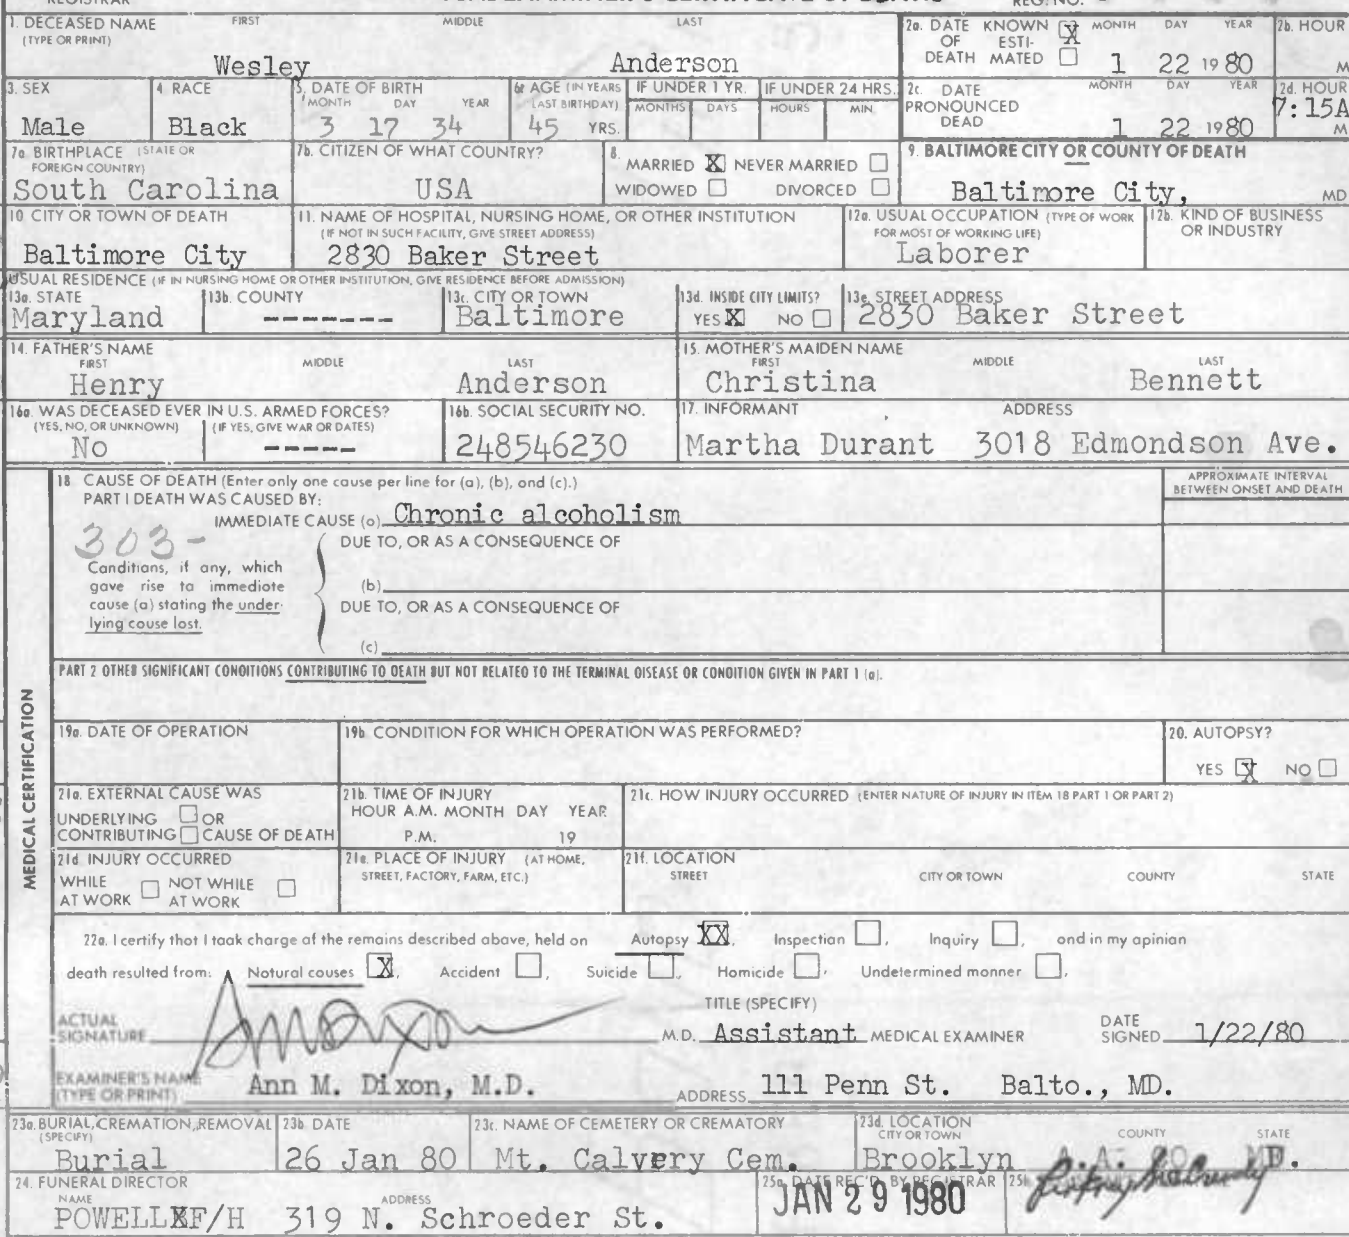 REGISTRAR REG. NO.
1. DECEASED NAME FIRST MIDDLE LAST
(TYPE OR PRINT)
Wesley Anderson
2a. DATE OF DEATH KNOWN X ESTIMATED MONTH DAY YEAR
1 22 1980
2b. HOUR
M
3. SEX
Male
4. RACE
Black
5. DATE OF BIRTH
MONTH DAY YEAR
3 17 34
6. AGE (IN YEARS LAST BIRTHDAY)
45 YRS.
IF UNDER 1 YR.
MONTHS DAYS
IF UNDER 24 HRS.
HOURS MIN.
2c. DATE PRONOUNCED DEAD MONTH DAY YEAR
1 22 1980
2d. HOUR
7:15A
M
7a. BIRTHPLACE (STATE OR
FOREIGN COUNTRY)
South Carolina
7b. CITIZEN OF WHAT COUNTRY?
USA
8.
MARRIED X NEVER MARRIED
WIDOWED DIVORCED
9. BALTIMORE CITY OR COUNTY OF DEATH
Baltimore City, MD
10. CITY OR TOWN OF DEATH
Baltimore City
11. NAME OF HOSPITAL, NURSING HOME, OR OTHER INSTITUTION
(IF NOT IN SUCH FACILITY, GIVE STREET ADDRESS)
2830 Baker Street
12a. USUAL OCCUPATION (TYPE OF WORK
FOR MOST OF WORKING LIFE)
Laborer
12b. KIND OF BUSINESS
OR INDUSTRY
USUAL RESIDENCE (IF IN NURSING HOME OR OTHER INSTITUTION, GIVE RESIDENCE BEFORE ADMISSION)
13a. STATE
Maryland
13b. COUNTY
-------
13c. CITY OR TOWN
Baltimore
13d. INSIDE CITY LIMITS?
YES X NO
13e. STREET ADDRESS
2830 Baker Street
14. FATHER'S NAME
FIRST MIDDLE LAST
Henry Anderson
15. MOTHER'S MAIDEN NAME
FIRST MIDDLE LAST
Christina Bennett
16a. WAS DECEASED EVER IN U.S. ARMED FORCES?
(YES, NO, OR UNKNOWN) (IF YES, GIVE WAR OR DATES)
No -----
16b. SOCIAL SECURITY NO.
248546230
17. INFORMANT ADDRESS
Martha Durant 3018 Edmondson Ave.
MEDICAL CERTIFICATION
18 CAUSE OF DEATH (Enter only one cause per line for (a), (b), and (c).)
PART I DEATH WAS CAUSED BY:
IMMEDIATE CAUSE (a) Chronic alcoholism
APPROXIMATE INTERVAL
BETWEEN ONSET AND DEATH
303-
DUE TO, OR AS A CONSEQUENCE OF
Conditions, if any, which
gave rise to immediate
cause (a) stating the under-
lying cause last.
(b)
DUE TO, OR AS A CONSEQUENCE OF
(c)
PART 2 OTHER SIGNIFICANT CONDITIONS CONTRIBUTING TO DEATH BUT NOT RELATED TO THE TERMINAL DISEASE OR CONDITION GIVEN IN PART 1 (a).
19a. DATE OF OPERATION
19b CONDITION FOR WHICH OPERATION WAS PERFORMED?
20. AUTOPSY?
YES X NO
21a. EXTERNAL CAUSE WAS
UNDERLYING OR
CONTRIBUTING CAUSE OF DEATH
21b. TIME OF INJURY
HOUR A.M. MONTH DAY YEAR
P.M. 19
21c. HOW INJURY OCCURRED (ENTER NATURE OF INJURY IN ITEM 18 PART 1 OR PART 2)
21d INJURY OCCURRED
WHILE AT WORK NOT WHILE AT WORK
21e. PLACE OF INJURY (AT HOME,
STREET, FACTORY, FARM, ETC.)
21f. LOCATION
STREET CITY OR TOWN COUNTY STATE
22a. I certify that I took charge of the remains described above, held on Autopsy XX, Inspection , Inquiry , and in my opinion
death resulted from: Natural causes X, Accident , Suicide , Homicide , Undetermined manner ,
ACTUAL
SIGNATURE
TITLE (SPECIFY)
M.D. Assistant MEDICAL EXAMINER
DATE
SIGNED 1/22/80
EXAMINER'S NAME
(TYPE OR PRINT) Ann M. Dixon, M.D.
ADDRESS 111 Penn St. Balto., MD.
23a. BURIAL, CREMATION, REMOVAL
(SPECIFY)
Burial
23b DATE
26 Jan 80
23c. NAME OF CEMETERY OR CREMATORY
Mt. Calvery Cem.
23d. LOCATION
CITY OR TOWN COUNTY STATE
Brooklyn A.A. CO MD.
24. FUNERAL DIRECTOR
NAME ADDRESS
POWELLXF/H 319 N. Schroeder St.
25a. DATE REC'D. BY REGISTRAR
JAN 29 1980